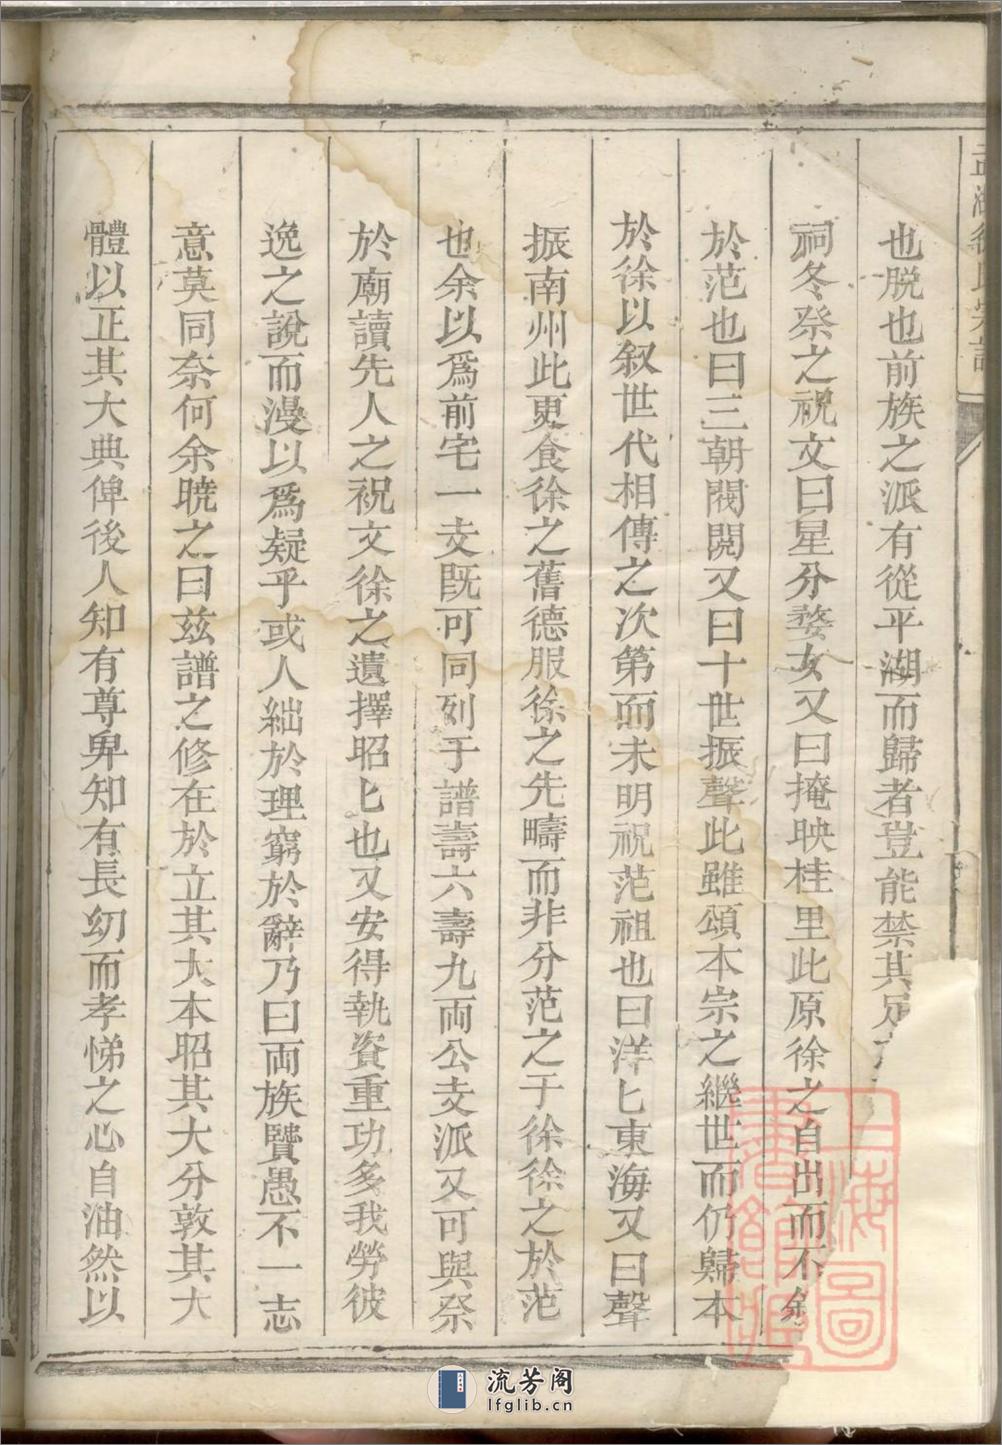 也脱也前族之派有從平湖而歸者豈能禁其足
祠冬祭之祝文曰星分婺女又曰掩映桂里此原徐之自出而不
於范也曰三朝閥閱又曰十世振聲此雖頌本宗之繼世而仍歸本
於徐以叙世代相傳之次第而未明祝范祖也曰洋匕東海又曰聲
振南州此更食徐之舊德服徐之先疇而非分范之于徐徐之於范
也余以爲前宅一支既可同列于譜壽六壽九両公支派又可與祭
於廟讀先人之祝文徐之遺擇昭匕也又安得執資重功多我勞彼
逸之說而漫以爲疑乎或人絀於理窮於辭乃曰両族賢愚不一志
意莫同奈何余曉之曰兹譜之修在於立其大本昭其大分敦其大
體以正其大典俾後人知有尊卑知有長幼而孝悌之心自油然以
上海圖書館藏
流芳阁
lfglib.cn